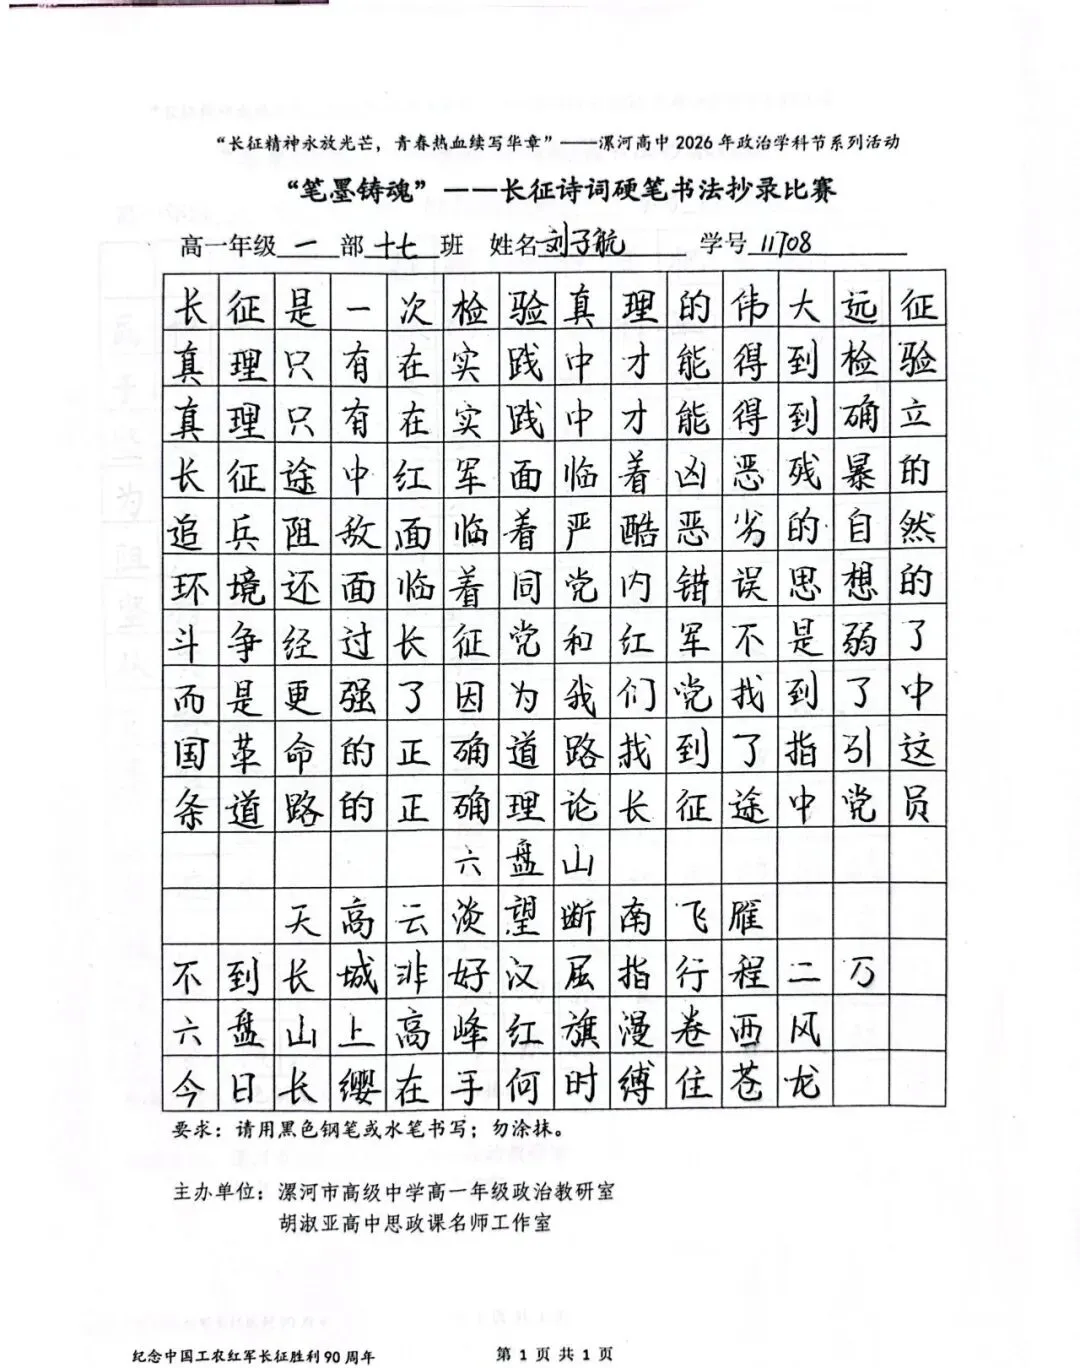 “长征精神永放光芒，青春热血续写华章”——漯河高中2026年政治学科节系列活动
“笔墨铸魂”——长征诗词硬笔书法抄录比赛
高一年级 一 部 十七 班 姓名 刘子航 学号 11708
长征是一次检验真理的伟大远征
真理只有在实践中才能得到检验
真理只有在实践中才能得到确立
长征途中红军面临着凶恶残暴的
追兵阻敌面临着严酷恶劣的自然
环境还面临着同党内错误思想的
斗争经过长征党和红军不是弱了
而是更强了因为我们党找到了中
国革命的正确道路找到了指引这
条道路的正确理论长征途中党员
六盘山
天高云淡望断南飞雁
不到长城非好汉屈指行程二万
六盘山上高峰红旗漫卷西风
今日长缨在手何时缚住苍龙
要求：请用黑色钢笔或水笔书写；勿涂抹。
主办单位：漯河市高级中学高一年级政治教研室
胡淑亚高中思政课名师工作室
纪念中国工农红军长征胜利90周年 第 1 页 共 1 页